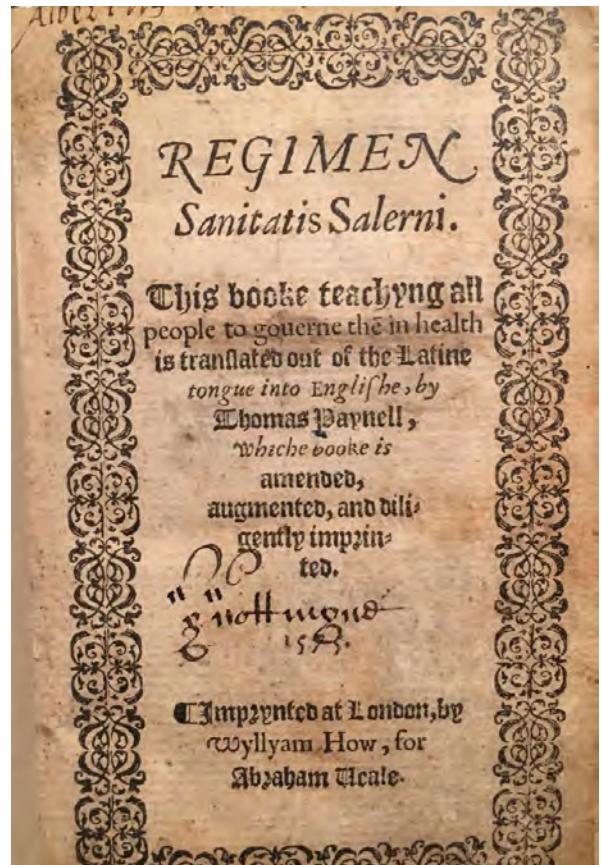 REGIMEN
Sanitatis Salerni.
This booke teachyng all
people to gouerne thē in health
is tranſlated out of the Latine
tongue into Engliſhe, by
Thomas Paynell,
whiche booke is
amended,
augmented, and dili⸗
gently imprin⸗
ted.
¶Imprynted at London, by
Wyllyam How, for
Abraham Ueale.